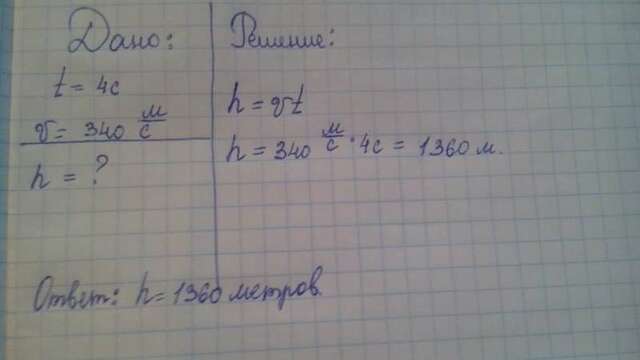 Дано:
t = 4с
v = 340 м/с
h = ?
Решение:
h = vt
h = 340 м/с · 4с = 1360 м.
Ответ: h = 1360 метров.